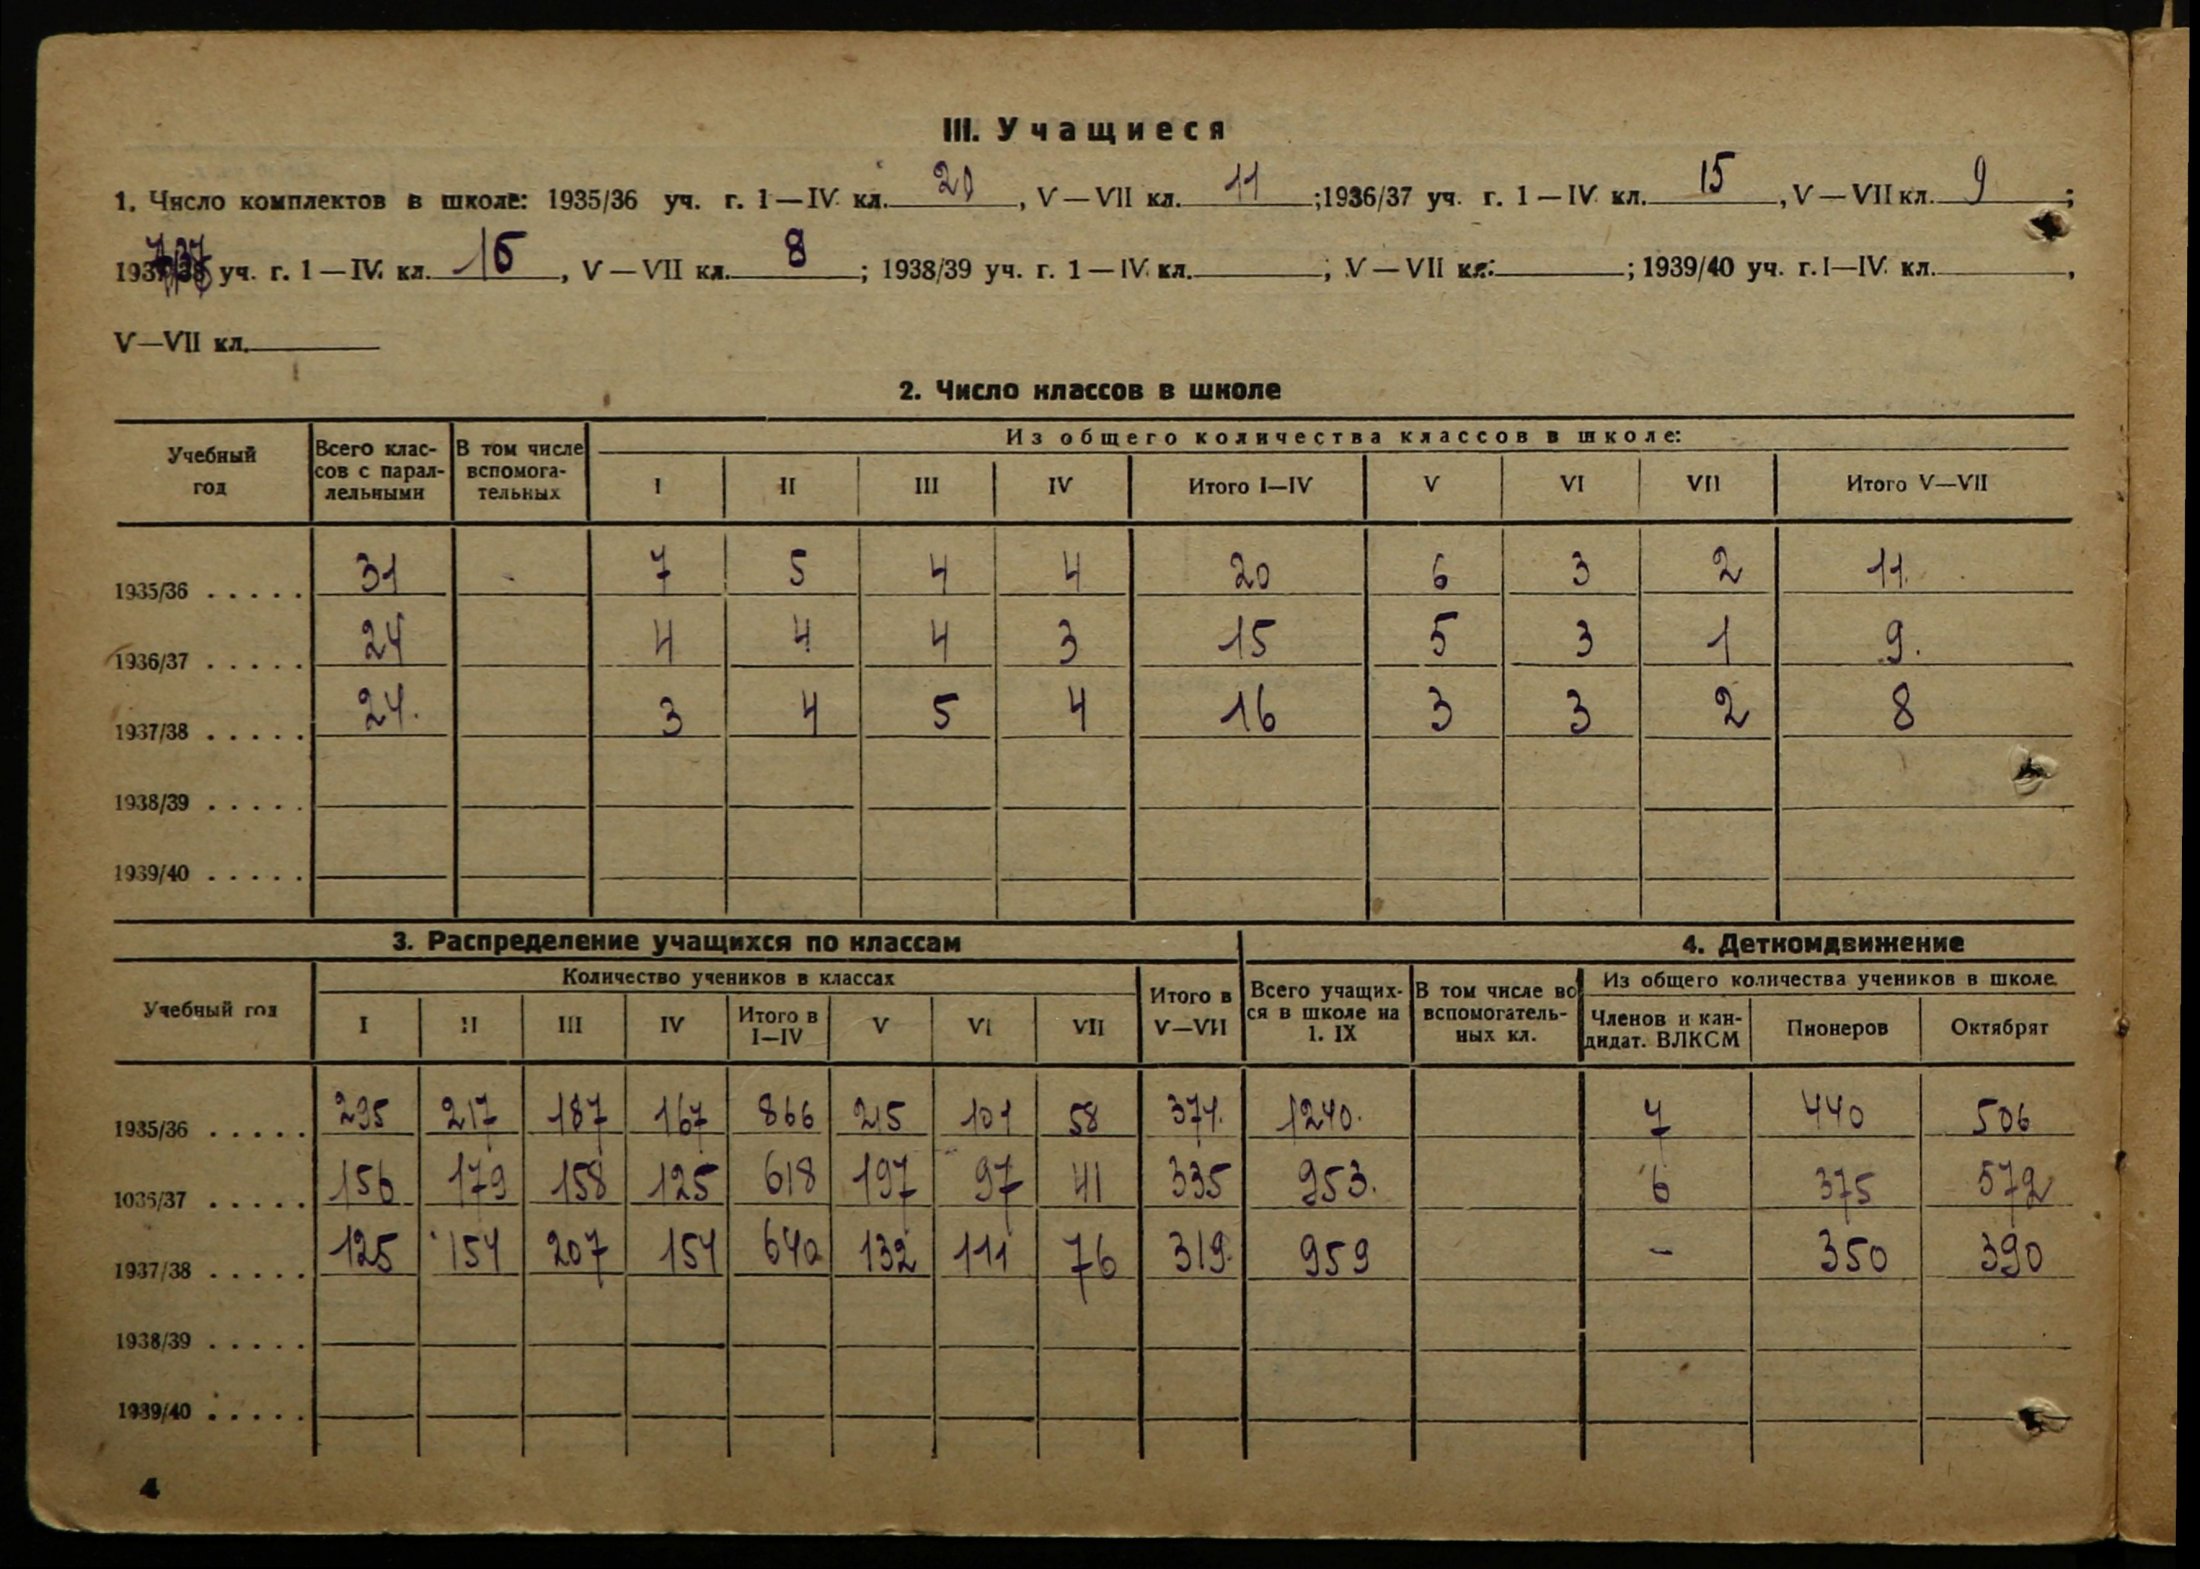 III. Учащиеся
1. Число комплектов в школе: 1935/36 уч. г. 1—IV кл. 20, V—VII кл. 11; 1936/37 уч. г. 1—IV кл. 15, V—VII кл. 9;
1937/38 уч. г. 1—IV кл. 16, V—VII кл. 8; 1938/39 уч. г. 1—IV кл. , V—VII кл. ; 1939/40 уч. г. I—IV кл. ,
V—VII кл.
2. Число классов в школе
Учебный год | Всего классов с параллельными | В том числе вспомогательных | Из общего количества классов в школе:
I | II | III | IV | Итого I—IV | V | VI | VII | Итого V—VII
1935/36 ..... 31 - 7 5 4 4 20 6 3 2 11
1936/37 ..... 24 4 4 4 3 15 5 3 1 9.
1937/38 ..... 24. 3 4 5 4 16 3 3 2 8
1938/39 .....
1939/40 .....
3. Распределение учащихся по классам | 4. Деткомдвижение
Учебный год | Количество учеников в классах | Итого в V—VII | Всего учащихся в школе на 1. IX | В том числе во вспомогательных кл. | Из общего количества учеников в школе
I | II | III | IV | Итого в I—IV | V | VI | VII | Членов и кандидат. ВЛКСМ | Пионеров | Октябрят
1935/36 ..... 295 217 187 167 866 215 101 58 374. 1240. 7 440 506
1036/37 ..... 156 179 158 125 618 197 97 41 335 953. 6 375 572
1937/38 ..... 125 154 207 154 640 132 111 76 319. 959 - 350 390
1938/39 .....
1939/40 .....
4